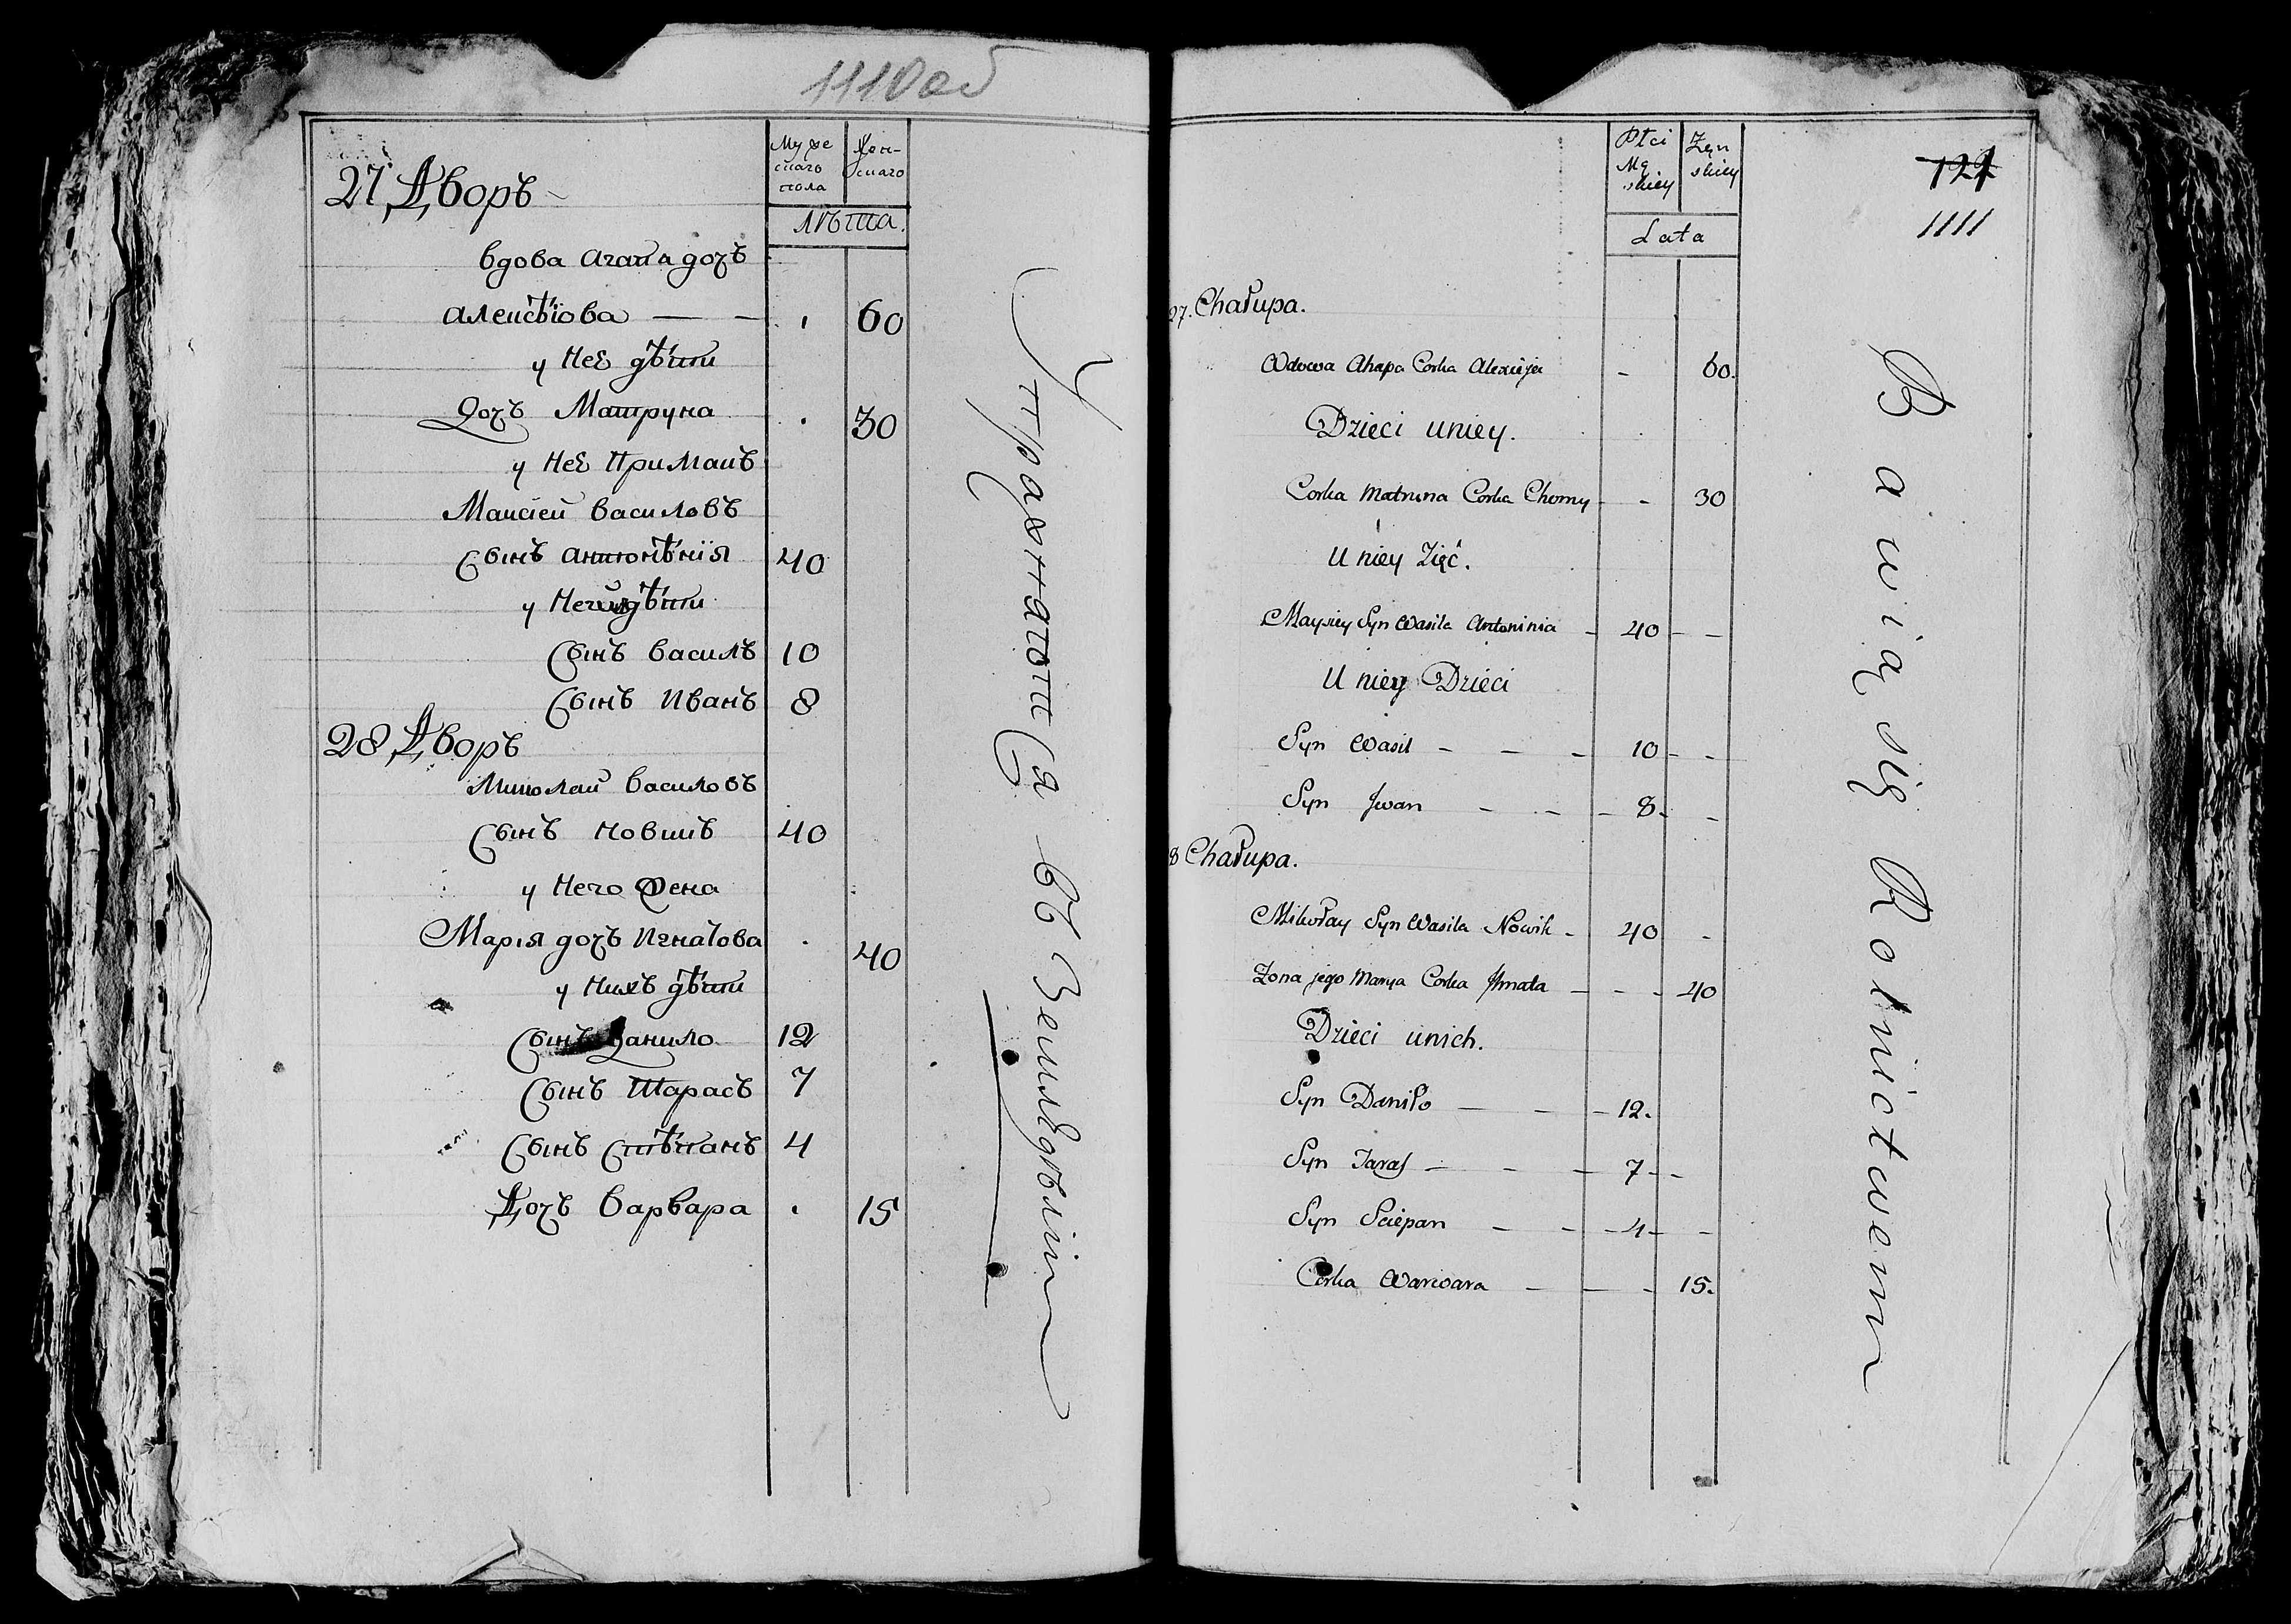 1110 об
27 Дворъ
Мужескаго пола
Женскаго
лѣта.
вдова Агапа дочъ
Алексѣіова — — 60
у Неѣ дѣти
Дочъ Матруна 30
у Неѣ Примакъ
Маисіей Василовъ
Сынъ Антонѣнія 40
у дѣти
Сынъ Василь 10
Сынъ Иванъ 8
28 Дворъ
Миколай Василовъ
Сынъ Новикъ 40
у Него Жена
Марія дочъ Игнатова 40
у Нихъ дѣти
Сынъ Данило 12
Сынъ Тарасъ 7
Сынъ Стѣпанъ 4
Дочъ Варвара 15
Упражняются въ Земледѣліи
Płci Męskiey
Żęnskiey
Lata
121
1111
27. Chałupa.
Wdowa Ahapa Corka Alexieja - 60.
Dzieci uniey.
Corka Matruna Corka Chomy - - 30
U niey Zięć.
Maysiey Syn Wasila Antoninia - 40 - -
U niey Dzieci
Syn Wasil - - - 10 - -
Syn Jwan - - - 8. -
8 Chałupa.
Mikołay Syn Wasila Nowik - 40 -
Zona jego Marya Corka Jhnata - - - 40
Dzieci unich.
Syn Daniło - - - 12.
Syn Taras - - - 7 - -
Syn Sciepan - - - 4 - -
Corka Warwara - - - 15.
Bawią się Rolnictwem